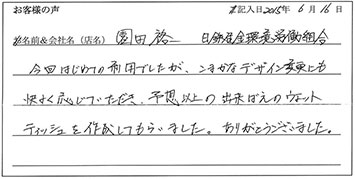 お客様の声
※記入日2015年 6月 16日
お名前&会社名(店名) 園田 裕二 日鉄住金環境労働組合
今回はじめての利用でしたが、こまかなデザイン変更にも
快よく応じていただき、予想以上の出来ばえのウェット
ティッシュを作成してもらいました。ありがとうございました。